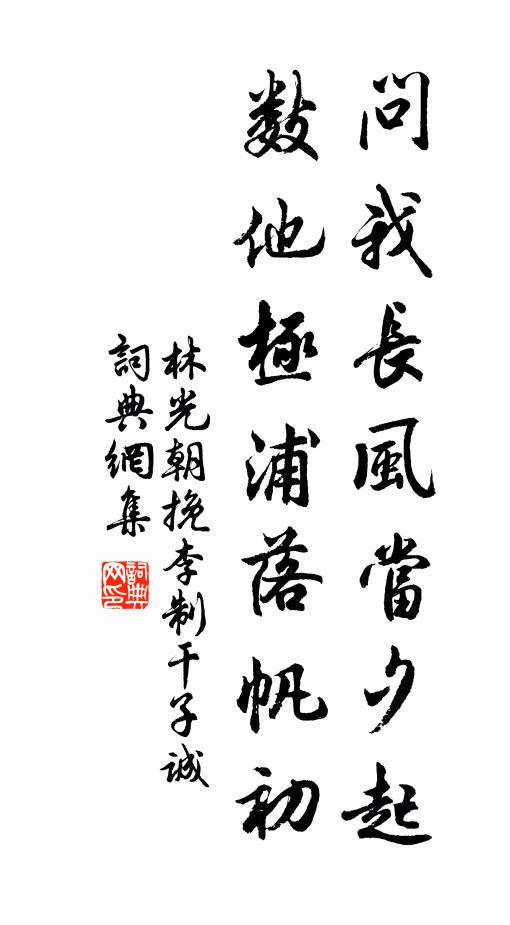 問我長風當夕起
數他極浦落帆初
林光朝挽李制干子誠
詞典網集
詞典網印